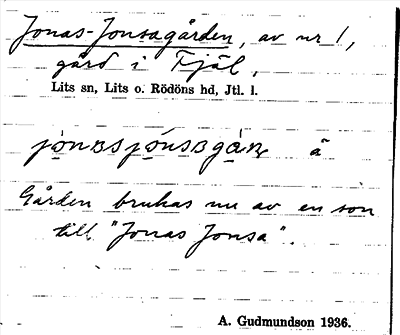 Jonas-Jonsagården, av nr 1,
gård i Fjäl,
Lits sn, Lits o. Rödöns hd, Jtl. l.
å
Gården brukas nu av en son
till "Jonas Jonsa".
A. Gudmundson 1936.